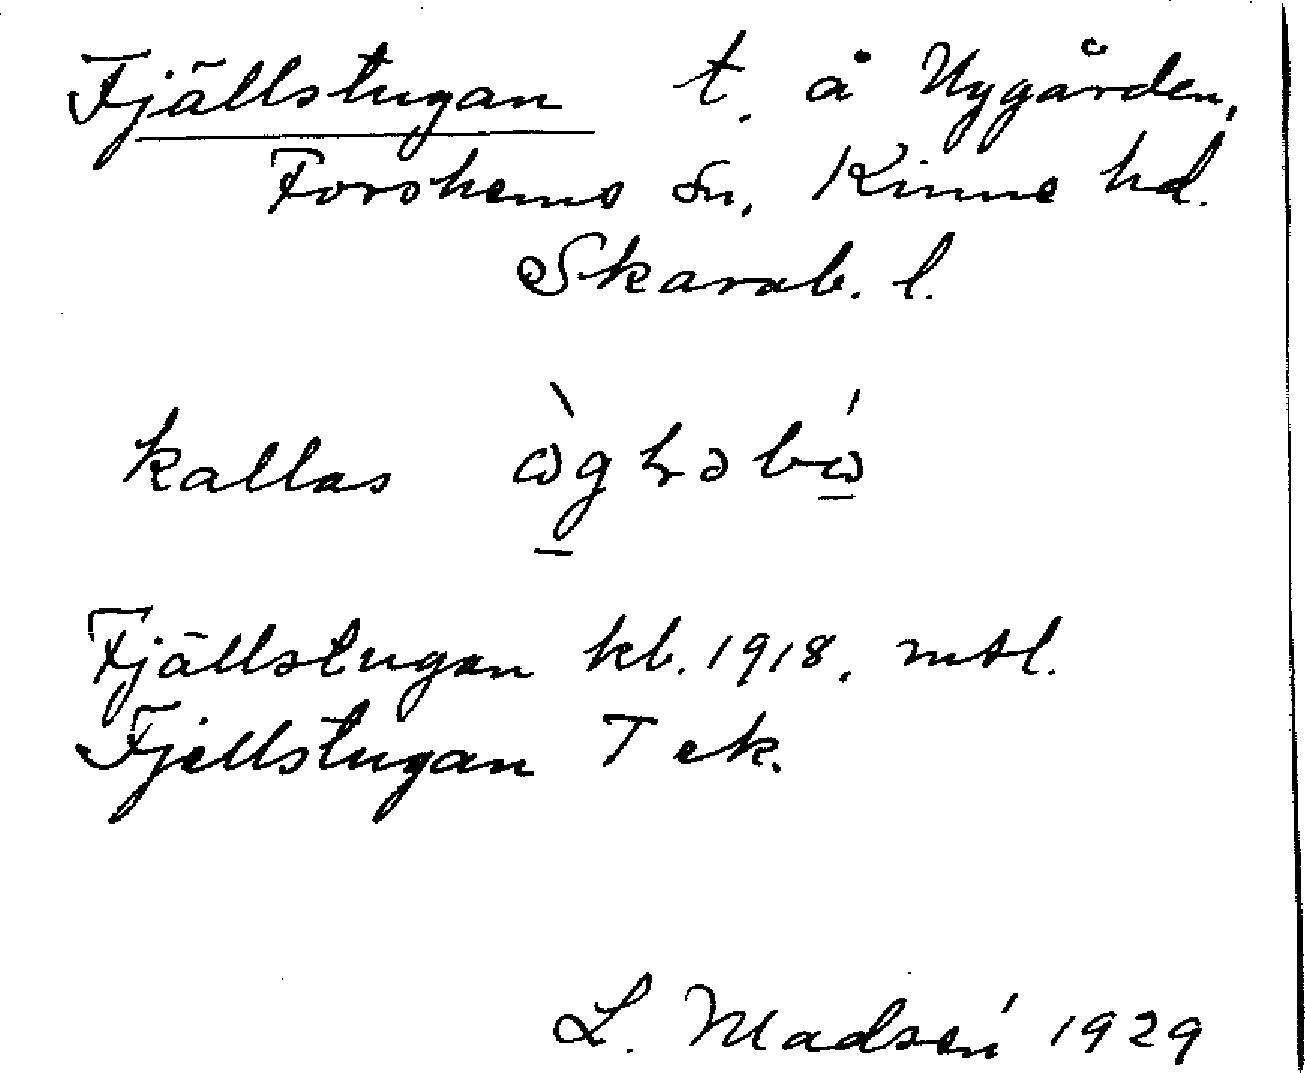 Fjällstugan t. å Nygården,
Forshems sn, Kinne hd.
Skarab. l.
kallas
Fjällstugan kb. 1918, mtl.
Fjellstugan T ek.
L. Madsén 1929